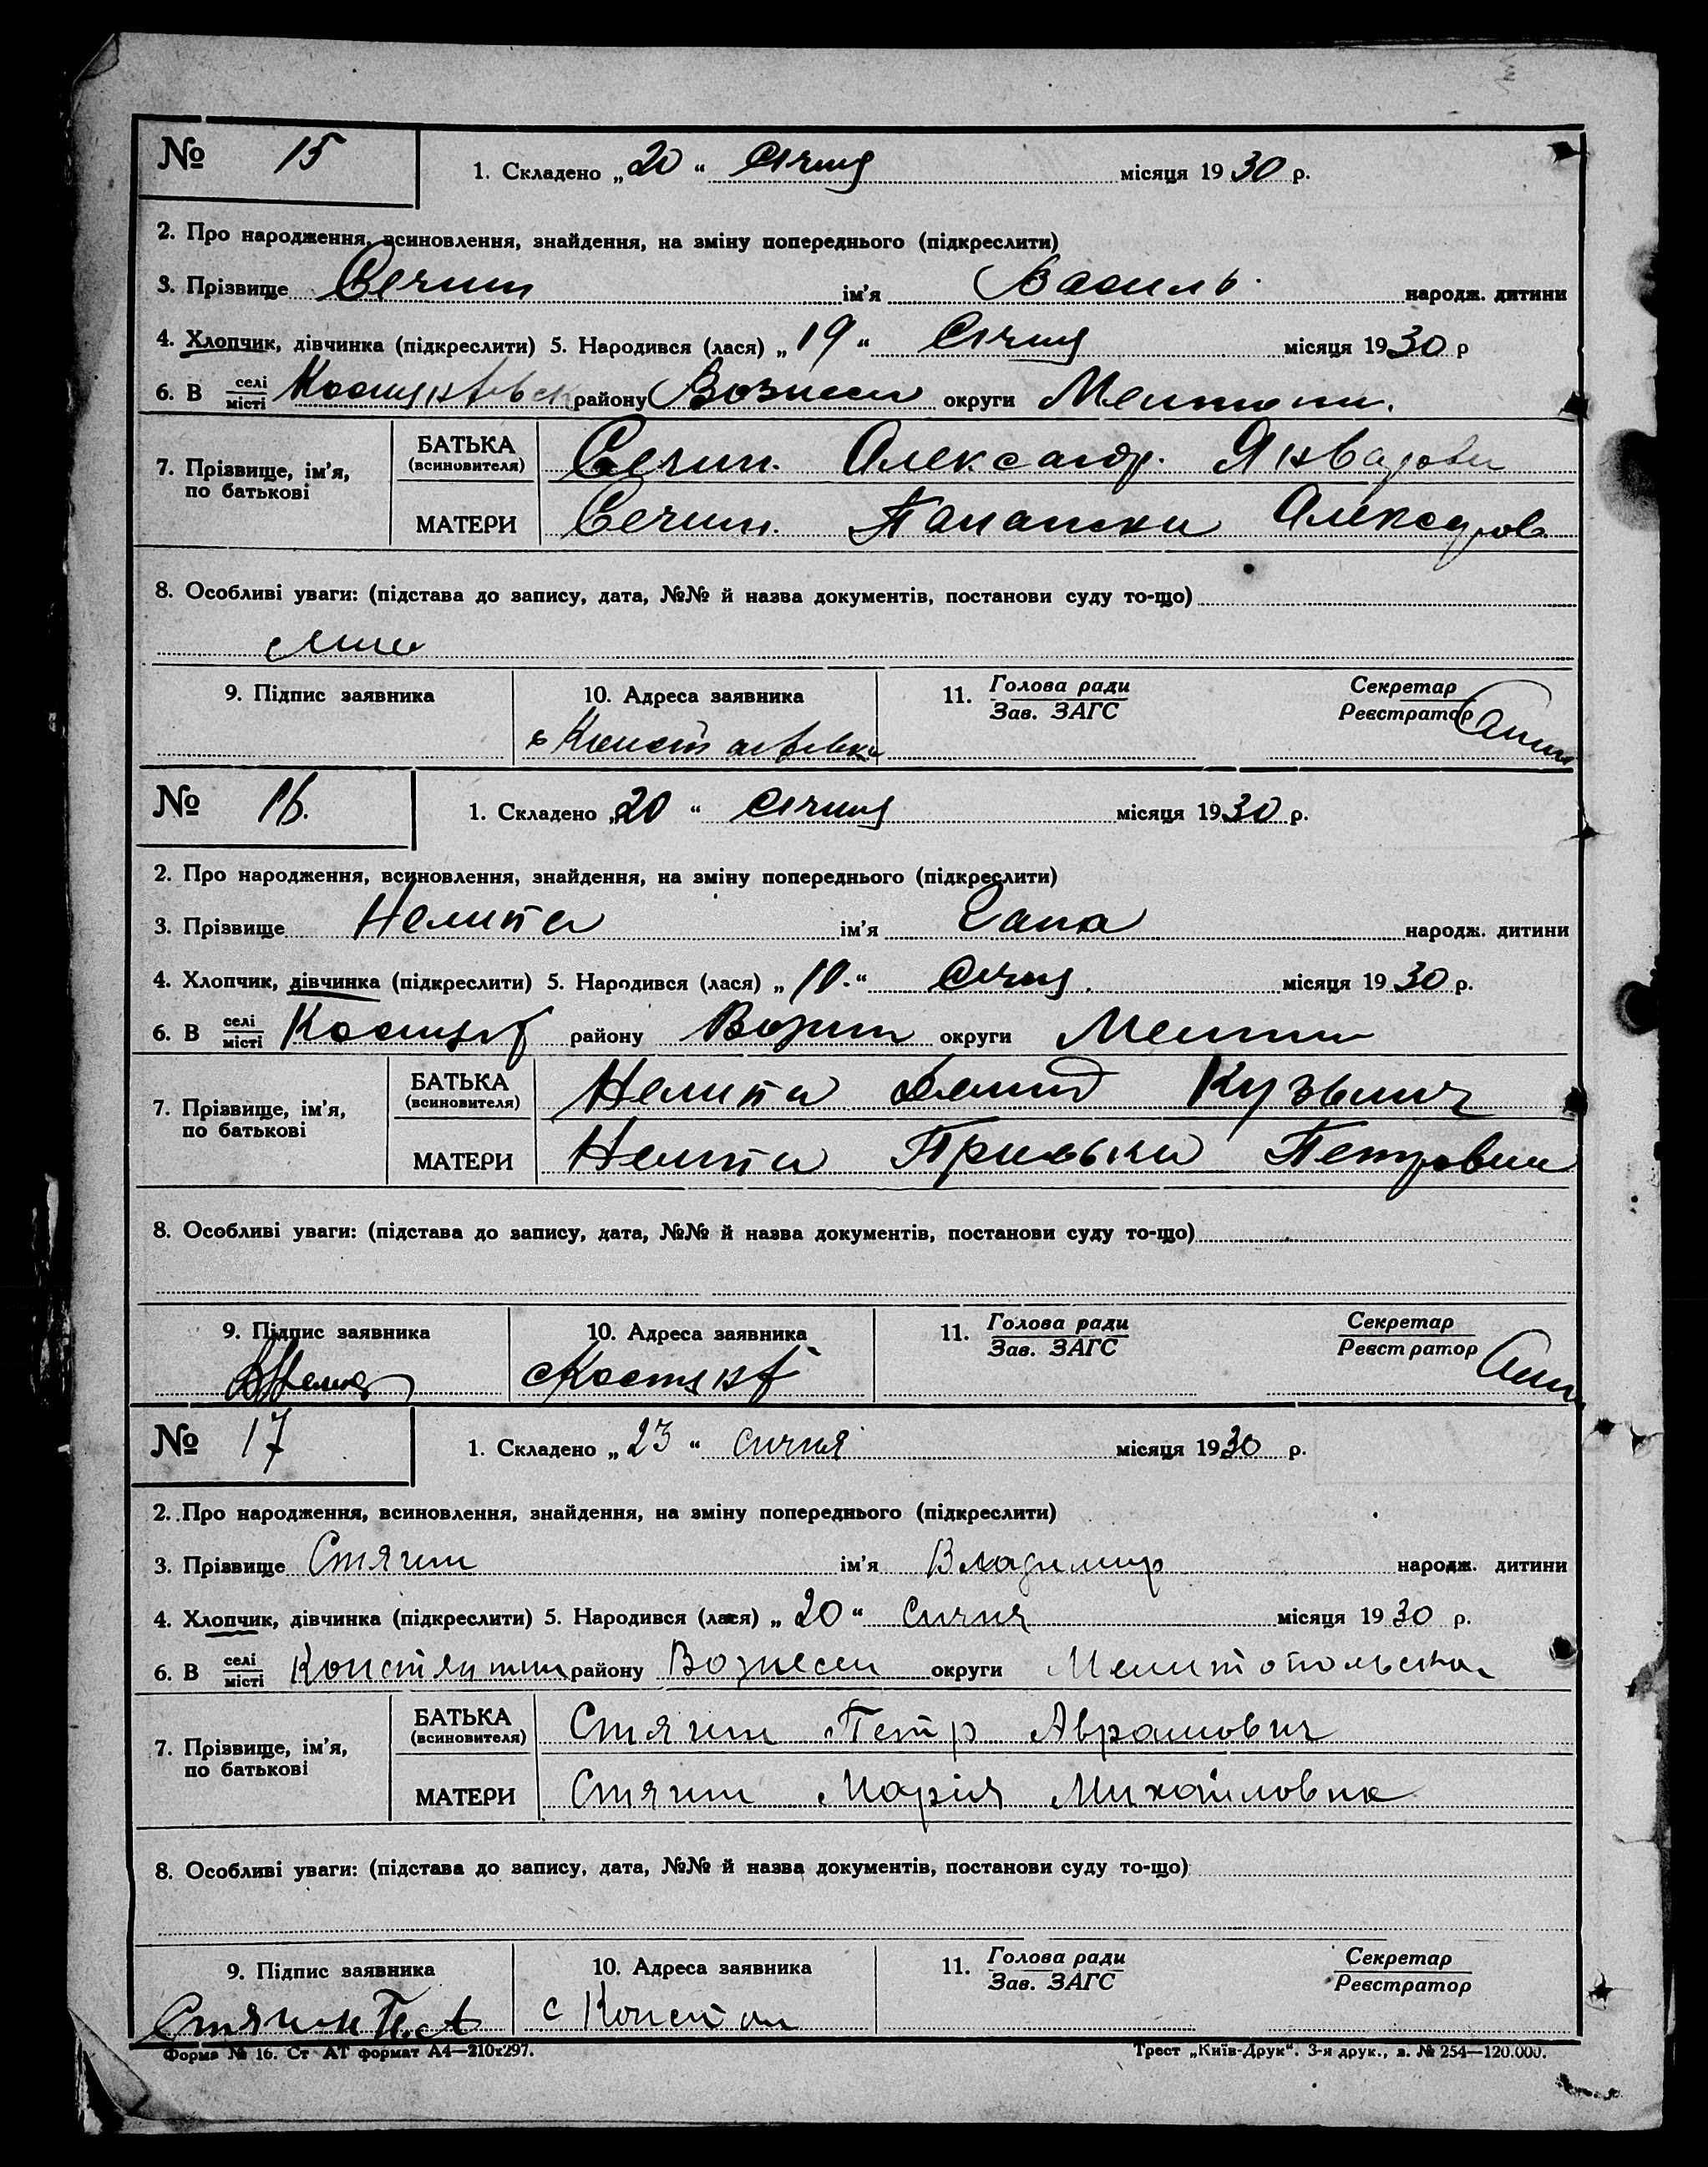 № 15 1. Складено „20“ Січня місяця 1930 р.
2. Про народження, всиновлення, знайдення, на зміну попереднього (підкреслити)
3. Прізвище Сечин ім’я Василь народж. дитини
4. Хлопчик, дівчинка (підкреслити) 5. Народився (лася) „19“ Січня місяця 1930 р
6. В селі місті району Вознесен округи
7. Прізвище, ім’я, по батькові
БАТЬКА (всиновителя) Сечин. Александр.
МАТЕРИ Сечин.
8. Особливі уваги: (підстава до запису, дата, №№ й назва документів, постанови суду то-що)
9. Підпис заявника 10. Адреса заявника 11. Голова ради Зав. ЗАГС Секретар Реєстратор
№ 16. 1. Складено „20“ Січня місяця 1930 р.
2. Про народження, всиновлення, знайдення, на зміну попереднього (підкреслити)
3. Прізвище Нелипа ім’я Гана народж. дитини
4. Хлопчик, дівчинка (підкреслити) 5. Народився (лася) „ “ Січня. місяця 1930 р.
6. В селі місті району округи
7. Прізвище, ім’я, по батькові
БАТЬКА (всиновителя) Нелипа Демид Кузьмич
МАТЕРИ Нелипа
8. Особливі уваги: (підстава до запису, дата, №№ й назва документів, постанови суду то-що)
9. Підпис заявника 10. Адреса заявника 11. Голова ради Зав. ЗАГС Секретар Реєстратор
№ 17 1. Складено „23“ сичня місяця 1930 р.
2. Про народження, всиновлення, знайдення, на зміну попереднього (підкреслити)
3. Прізвище Стягин ім’я Владимир народж. дитини
4. Хлопчик, дівчинка (підкреслити) 5. Народився (лася) „20“ Сичня місяця 1930 р.
6. В селі місті району Вознесен округи
7. Прізвище, ім’я, по батькові
БАТЬКА (всиновителя) Стягин Петр Аврамович
МАТЕРИ Стягин Марія Михайловна
8. Особливі уваги: (підстава до запису, дата, №№ й назва документів, постанови суду то-що)
9. Підпис заявника 10. Адреса заявника 11. Голова ради Зав. ЗАГС Секретар Реєстратор
Форма № 16. Ст АТ формат А4—210х297. Трест „Київ-Друк“. 3-я друк., з. № 254—120.000.